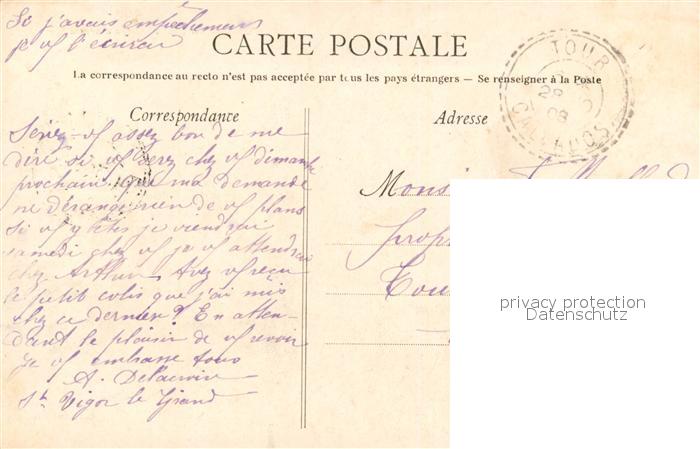 Si j'avais empêchement
je vs l'écrirai
CARTE POSTALE
La correspondance au recto n'est pas acceptée par tous les pays étrangers — Se renseigner à la Poste
TOUR
28
08
CALVADOS
Correspondance
Adresse
Serez-vs assez bon de me
dire si vs serez chez vs dimanche
prochain que ma demande
ne dérange rien de vs plans
si vs y êtes je viendrai
samedi chez vs je vs attendrai
chez Arthur Avez vs reçu
le petit colis que j'ai mis
chez ce dernier? En atten-
dant le plaisir de vs revoir
Je vs embrasse tous
A.
St Vigor le Grand
Monsi
prop
Tou
privacy protection
Datenschutz